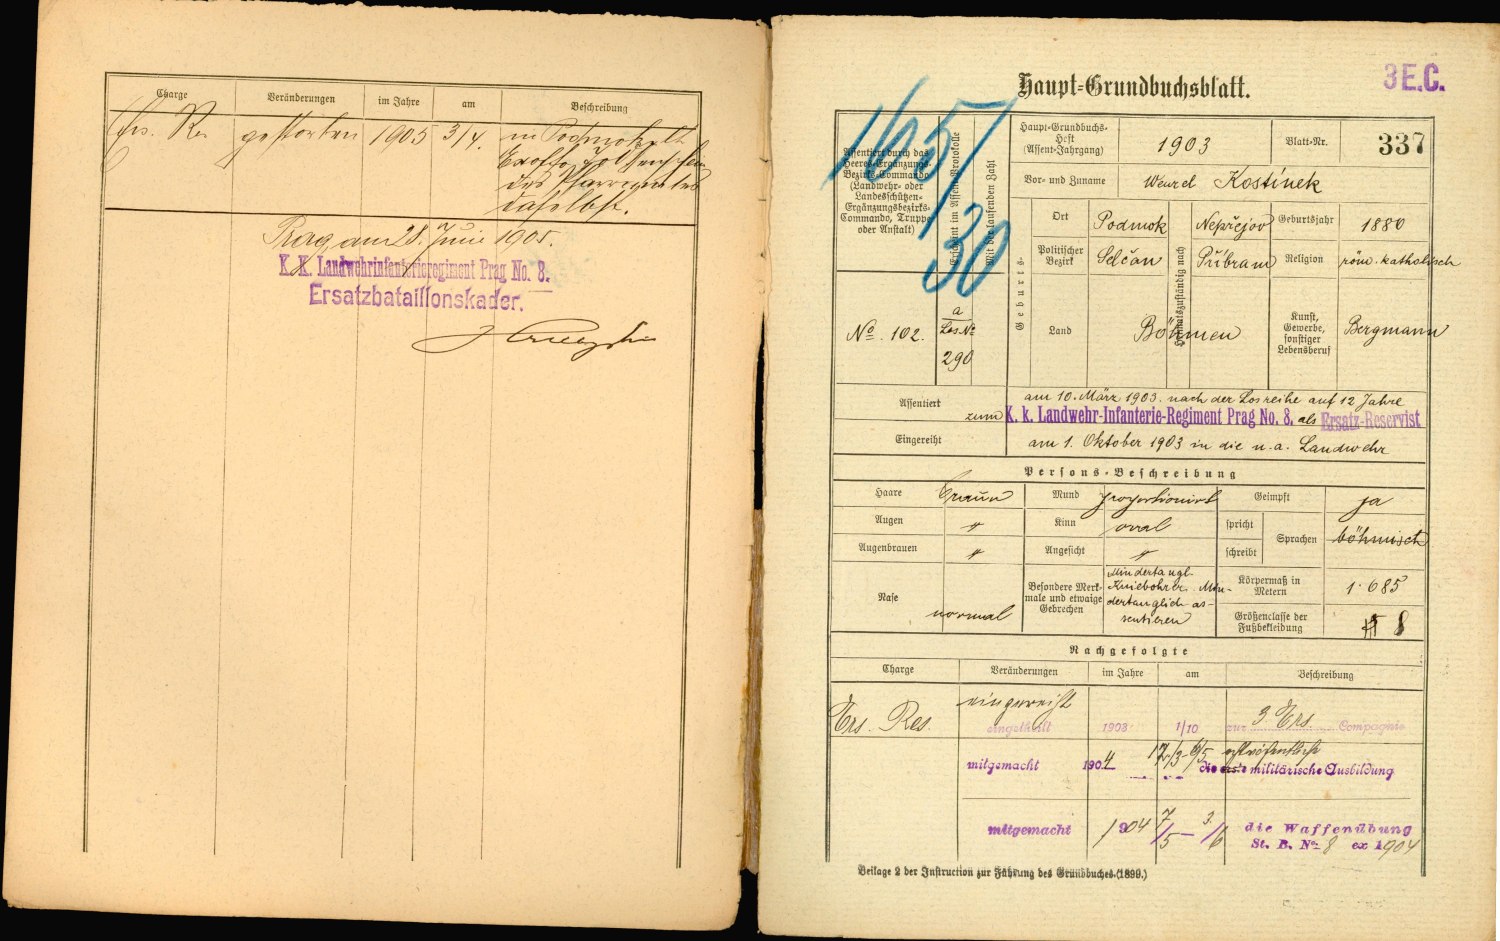 Charge Veränderungen im Jahre am Beschreibung
Ers. Res gestorben 1905 3/4. in Podmok lt
Exoffo
des Pfarramtes
daselbst.
Prag am 28. Juni 1905.
K. K. Landwehrinfanterieregiment Prag No. 8.
Ersatzbataillonskader.
3 E.C.
Haupt-Grundbuchsblatt.
165/30
Assentiert durch das
Heeres-Ergänzungs-
Bezirks-Commando
(Landwehr- oder
Landesschützen-
Ergänzungsbezirks-
Commando, Truppe
oder Anstalt)
Erscheint im Assent-Protokolle
Mit der laufenden Zahl
No. 102.
a
Los No
290
Haupt-Grundbuchs-
Heft
(Assent-Jahrgang)
1903
Blatt-Nr.
337
Vor- und Zuname Wenzel Kostínek
Geburts
Ort Podmok
Politischer
Bezirk
Selčan
Land Böhmen
Heimatszuständig nach
Nepřejov
Příbram
Geburtsjahr 1880
Religion röm. katholisch
Kunst,
Gewerbe,
sonstiger
Lebensberuf
Bergmann
Assentiert am 10. März 1903. nach der Losreihe auf 12 Jahre
zum K. k. Landwehr-Infanterie-Regiment Prag No. 8. als Ersatz-Reservist
Eingereiht am 1. Oktober 1903 in die n. a. Landwehr
Persons-Beschreibung
Haare braun Mund proportionirt Geimpft ja
Augen " Kinn oval spricht Sprachen böhmisch
Augenbrauen " Angesicht " schreibt
Nase normal
Besondere Merk-
male und etwaige
Gebrechen
Mindertaugl.
Kniebohrer. Min-
dertauglich as-
sentieren
Körpermaß in
Metern
1·685
Größenclasse der
Fußbekleidung
8
Nachgefolgte
Charge Veränderungen im Jahre am Beschreibung
Ers. Res. eingereiht
eingetheilt 1903 1/10 zur 3. Ers. Compagnie
mitgemacht 1904 12/3-6/5
die erste militärische Ausbildung
mitgemacht 1904 7/5 - 3./6 die Waffenübung
St. B. No 8 ex 1904
Beilage 2 der Instruction zur Führung des Grundbuches. (1899.)